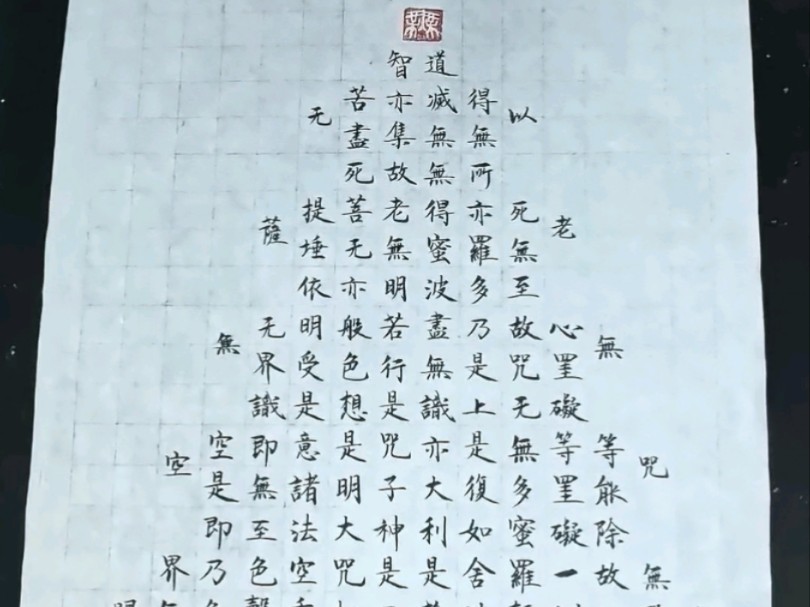 咒無
無等能除故
老心罣礙等罣礙一
以死無至故咒无無多蜜羅
得無所亦羅多乃是上是復如舍
道滅無無得蜜波盡無識亦大利是
智亦集故老無明若行是咒子神是
苦盡死菩无亦般色想是明大咒
无提埵依明受是意諸法空
薩无界識即無至色
無空是即乃
空界